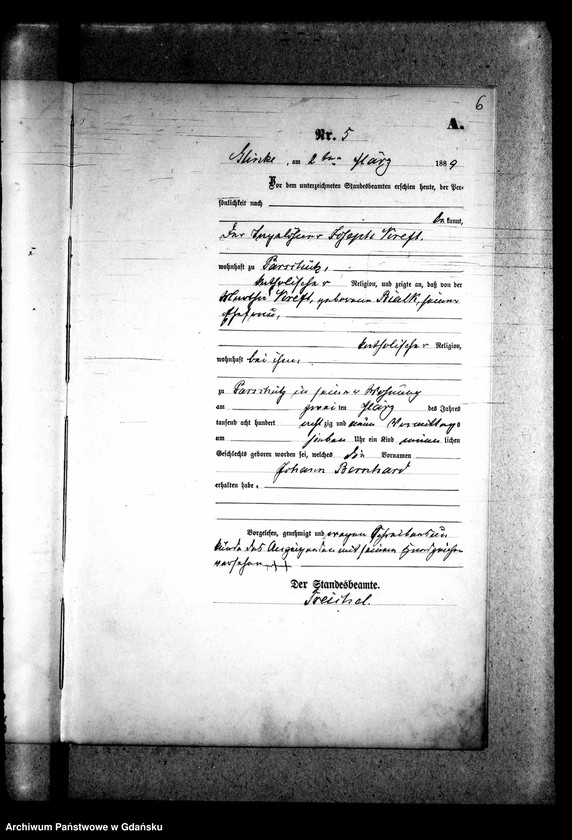 6
A.
Nr. 5
Glinke, am 2 ten März 1889
Vor dem unterzeichneten Standesbeamten erschien heute, der Per-
sönlichkeit nach
bekannt,
der Joseph Kreft,
wohnhaft zu Parschütz,
katholischer Religion, und zeigte an, daß von der
Kreft, geborene Bialk, seiner
Ehefrau,
katholischer Religion,
wohnhaft bei ihm,
zu Parschütz in seiner Wohnung
am zwei ten März des Jahres
tausend acht hundert acht zig und neun Vormittags
um sieben Uhr ein Kind männlichen
Geschlechts geboren worden sei, welches die Vornamen
Johann Bernhard
erhalten habe.
Vorgelesen, genehmigt und wegen Schreibensun
kunde des Anzeigenden mit seinem Handzeichen
versehen +++
Der Standesbeamte.
Treichel.
Archiwum Państwowe w Gdańsku